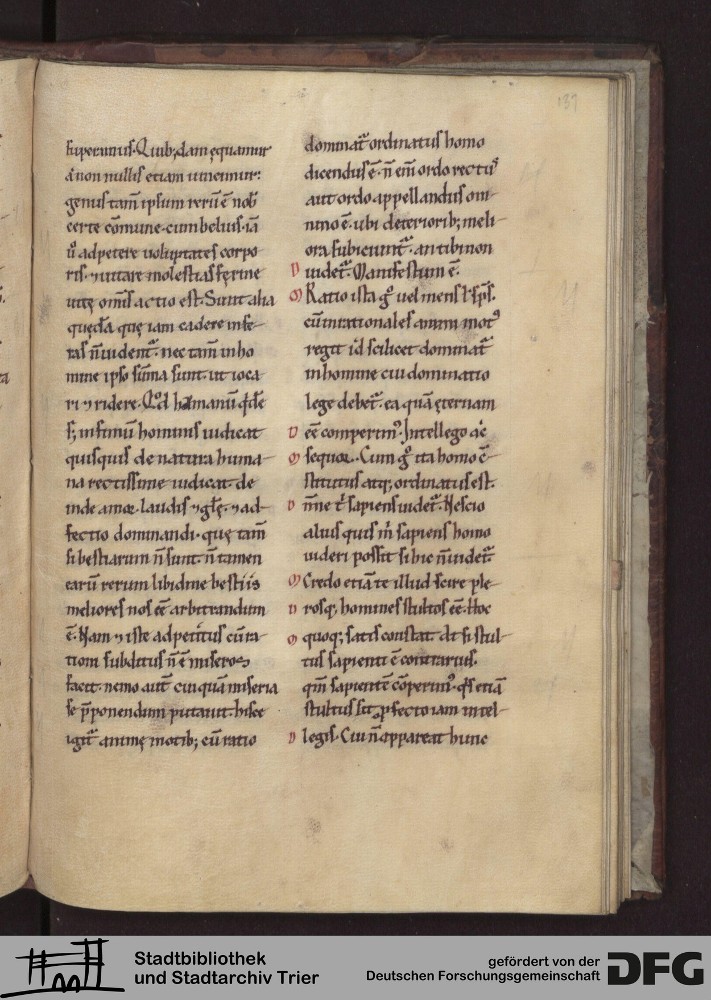 139
superamus. Quib; dam ęquamur
a non nullis etiam uincimur:
genus tam̄ ipsum rerū ē nob̄
certe cōmune cum beluis. iā
u̾ adpetere uoluptates corpo
ris. ⁊ uitare molestias ferine
uitę omīs actio est. Sunt alia
quędā. quę iam cadere infe-
ras n̄ uident᷑. nec tam̄ in ho
mine ipso sūma sunt. ut ioca
ri ⁊ ridere. Qđ humanū qđē
s; infimū hominis iudicat
quisquis de natura huma-
na rectissime iudicat. de
inde amor laudis ⁊ glę. ⁊ ad-
fectio dominandi. quę tam̄
si bestiarum n̄ sunt. n̄ tamen
earū rerum libidine bestiis
meliores nos eē arbitrandum
ē. Nam ⁊ iste adpetitus cū ra-
tioni subditus n̄ ē miseros
facit. nemo aut̄ cuiquā miseria
se p̄ponendum putauit. hisce
igit᷑ animę motib; cū ratio
dominat᷑ ordinatus homo
dicendus ē. n̄ eni̅ ordo rectus
aut ordo appellandus om-
nino ē. ubi deteriorib; meli-
ora subiciunt᷑. an tibi non
D uidet᷑. Manifestum ē.
M Ratio ista g̊ uel mens ł sp̄s.
cū inrationales animi mot᷒
regit id scilicet dominat᷑
in homine cui dominatio
lege debet᷑. ea quā ęternam
D eē comperim᷒. Intellego ac
M sequor. Cum g̊ ita homo ē-
stitutus atq; ordinatus est.
D nn̄e t̄ sapiens uidet᷑. Nescio
alius quis m̄ sapiens homo
uideri possit si hic n̄ uidet᷑
M Credo etiā te illud scire ple-
D rosq; homines stultos eē. Hoc
M quoq; satis constat. At si stul-
tus sapienti ē contrarius.
qm̄ sapientē cōperim᷒. qs etiā
stultus sit ꝓfecto iam intel-
D legis. Cui n̄ appareat hunc
Stadtbibliothek
und Stadtarchiv Trier
gefördert von der
Deutschen Forschungsgemeinschaft
DFG